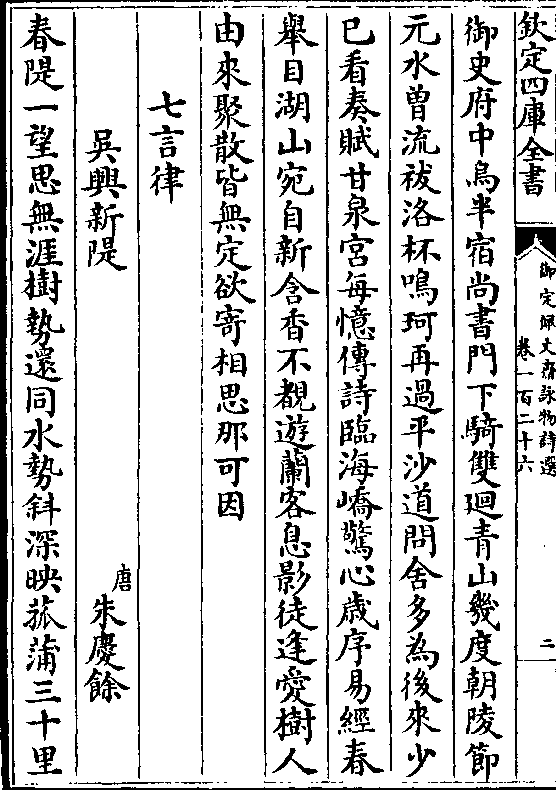 欽定四庫全書
御定佩文齋詠物詩選
卷一百二十六
二
御史府中烏半宿尚書門下騎雙廻青山幾度朝陵節
元水曽流祓洛杯鳴珂再過平沙道問舍多為後來少
已看奏賦甘泉宮每憶傳詩臨海嶠驚心歲序易經春
舉目湖山宛自新含香不覩遊蘭客息影徒逢愛樹人
由來聚散皆無定欲寄相思那可因
七言律
吳興新隄 唐朱慶餘
春隄一望思無涯樹勢還同水勢斜深映菰蒲三十里